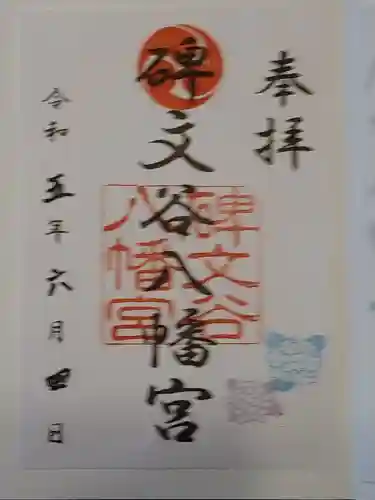 奉拝
碑文谷八幡宮
碑文谷
八幡宮
令和五年六月四日